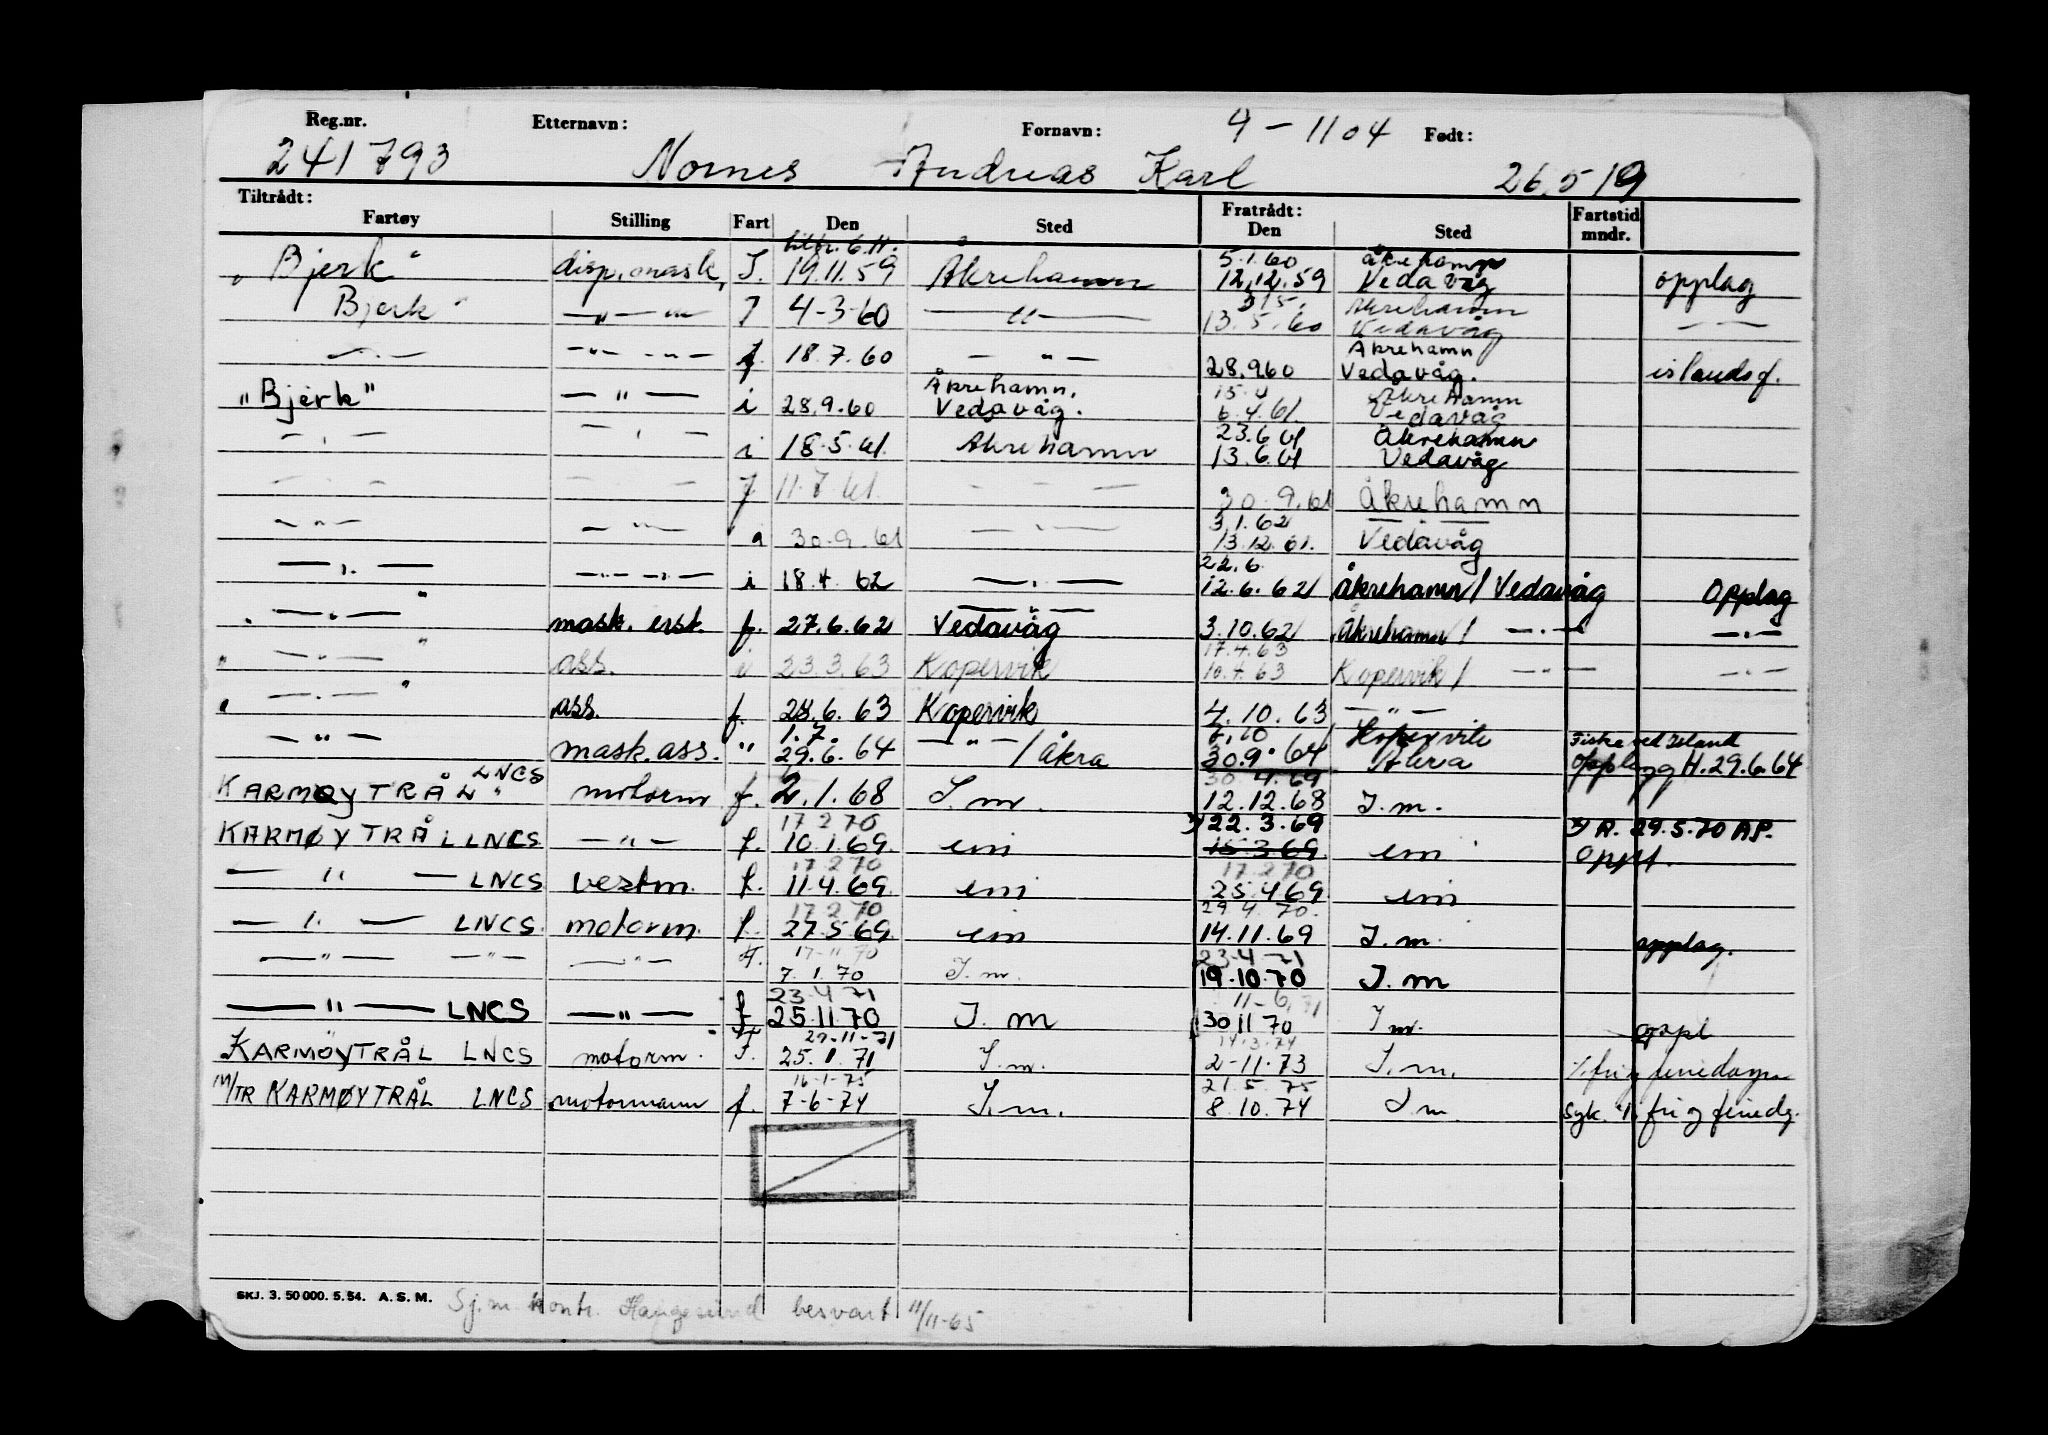 Reg.nr. Etternavn: Fornavn: 9-1104 Født:
241793 Nornes Andreas Karl 26.5 19
Tiltrådt: Fratrådt: Fartstid
Fartøy Stilling Fart Den Sted Den Sted mndr.
tiltr. 6.11. 5.1.60 Åkrehamn
"Bjerk" disp. mask. I. 19.11.59 Åkrehamn 12.12.59 Vedavåg opplag
31.5. Åkrehamn
Bjerk " — " — " — I 4-3-60 — " — 13.5.60 Vedavåg — —
Åkrehamn
— " — — " — " — f. 18.7.60 — " — 28.9.60 Vedavåg. islandsf.
Åkrehamn. 15.4 Åkrehamn
"Bjerk" — " — i 28.9.60 Vedavåg. 6.4.61 Vedavåg
23.6.61 Åkrehamn
— " — — " — i 18.5.61. Åkrehamn 13.6.61 Vedavåg
— " — — " — f 11.7.61. — " — 30.9.61 Åkrehamn
3.1.62 — " —
— " — — " — 30.9.61 — " — 13.12.61. Vedavåg
22.6.
— " — — " — " — i 18.4.62 — " — 12.6.62 Åkrehamn / Vedavåg Opplag
— " —
" — " — " mask. erst. f. 27.6.62 Vedavåg 3.10.62 Åkrehamn / — " — — " —
17.4.63
" — " — " ass. i 23.3.63 Kopervik 10.4.63 Kopervik / — " — — " —
" — " — " ass. f. 28.6.63 Kopervik 4.10.63 — " —
1.7. 7.10 Kopervik Fiske ved Island
— " — mask.ass. " 29.6.64 — " — / Åkra 30.9.64 Åkra Opplegg H. 29.6.64
LNCS 30.4.69
KARMØYTRÅL " motorm f. 2.1.68 I.m. 12.12.68 I.m.
17 2 70 x) 22.3.69 x) R. 29.5.70 AP.
KARMØYTRÅL LNCS — " — f. 10.1.69. im 15.3.69 im Oppl.
17 2 70 17 2 70
— " — LNCS vestm. f. 11.4.69. im 25.4.69 im
17 2 70 29.4.70.
— " — LNCS. motorm. f. 27.5.69 im 14.11.69 I.m. opplag.
17-11 70 23-4-71
— " — — " — — " — F. 7.1.70 I.m. 19.10.70 I.m
23-4 71 11-6.71
— " — LNCS — " — f 25.11.70 I.m 30 11 70 I m. oppl
29-11-71 14.3.74
KARMØYTRÅL LNCS motorm. F. 25.1.71 I.m. 2-11-73 I.m. ./. fri og feriedager
16-1-75 21.5.75
M/TR KARMØYTRÅL LNCS motormann f. 7-6-74 I.m. 8.10.74 I m. syk. ./. fri og feriedg.
SKJ. 3. 50 000. 5. 54. A. S. M. Sj.m. kontr. Haugesund besvart 11/11-65